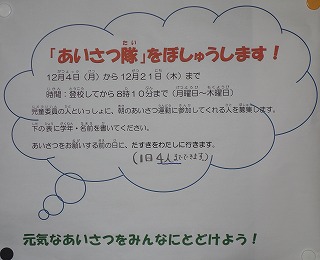 「あいさつ隊」をぼしゅうします！
12月4日（月）から12月21日（木）まで
時間：登校してから8時10分まで（月曜日～木曜日）
児童委員の人といっしょに、朝のあいさつ運動に参加してくれる人を募集します。
下の表に学年・名前を書いてください。
あいさつをお願いする前の日に、たすきをわたしに行きます。
（1日4人までできます）
元気なあいさつをみんなにとどけよう！